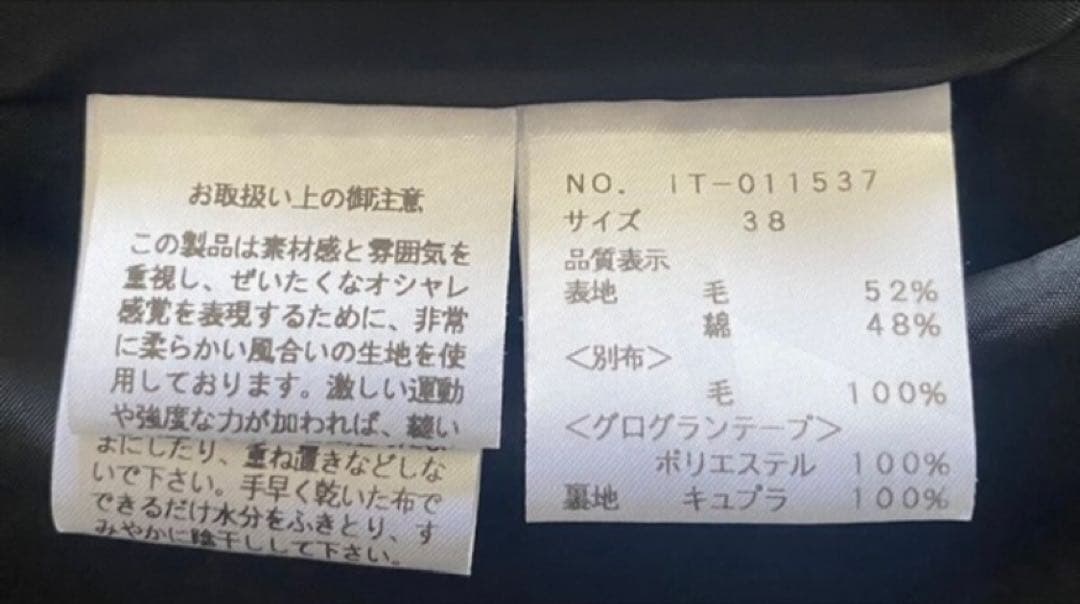 お取扱い上の御注意
この製品は素材感と雰囲気を
重視し、ぜいたくなオシャレ
感覚を表現するために、非常
に柔らかい風合いの生地を使
用しております。激しい運動
や強度な力が加われば、縫い
まにしたり、重ね置きなどしな
いで下さい。手早く乾いた布で
できるだけ水分をふきとり、す
みやかに陰干しして下さい。
NO. IT-011537
サイズ 38
品質表示
表地 毛 52%
綿 48%
<別布>
毛 100%
<グログランテープ>
ポリエステル 100%
裏地 キュプラ 100%